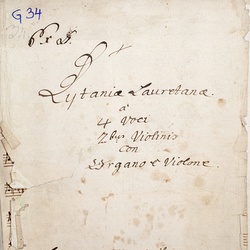 G 34
Lytaniæ Lauretanæ
à
4 Voci
2bus Violinis
con
Organo e Violone.